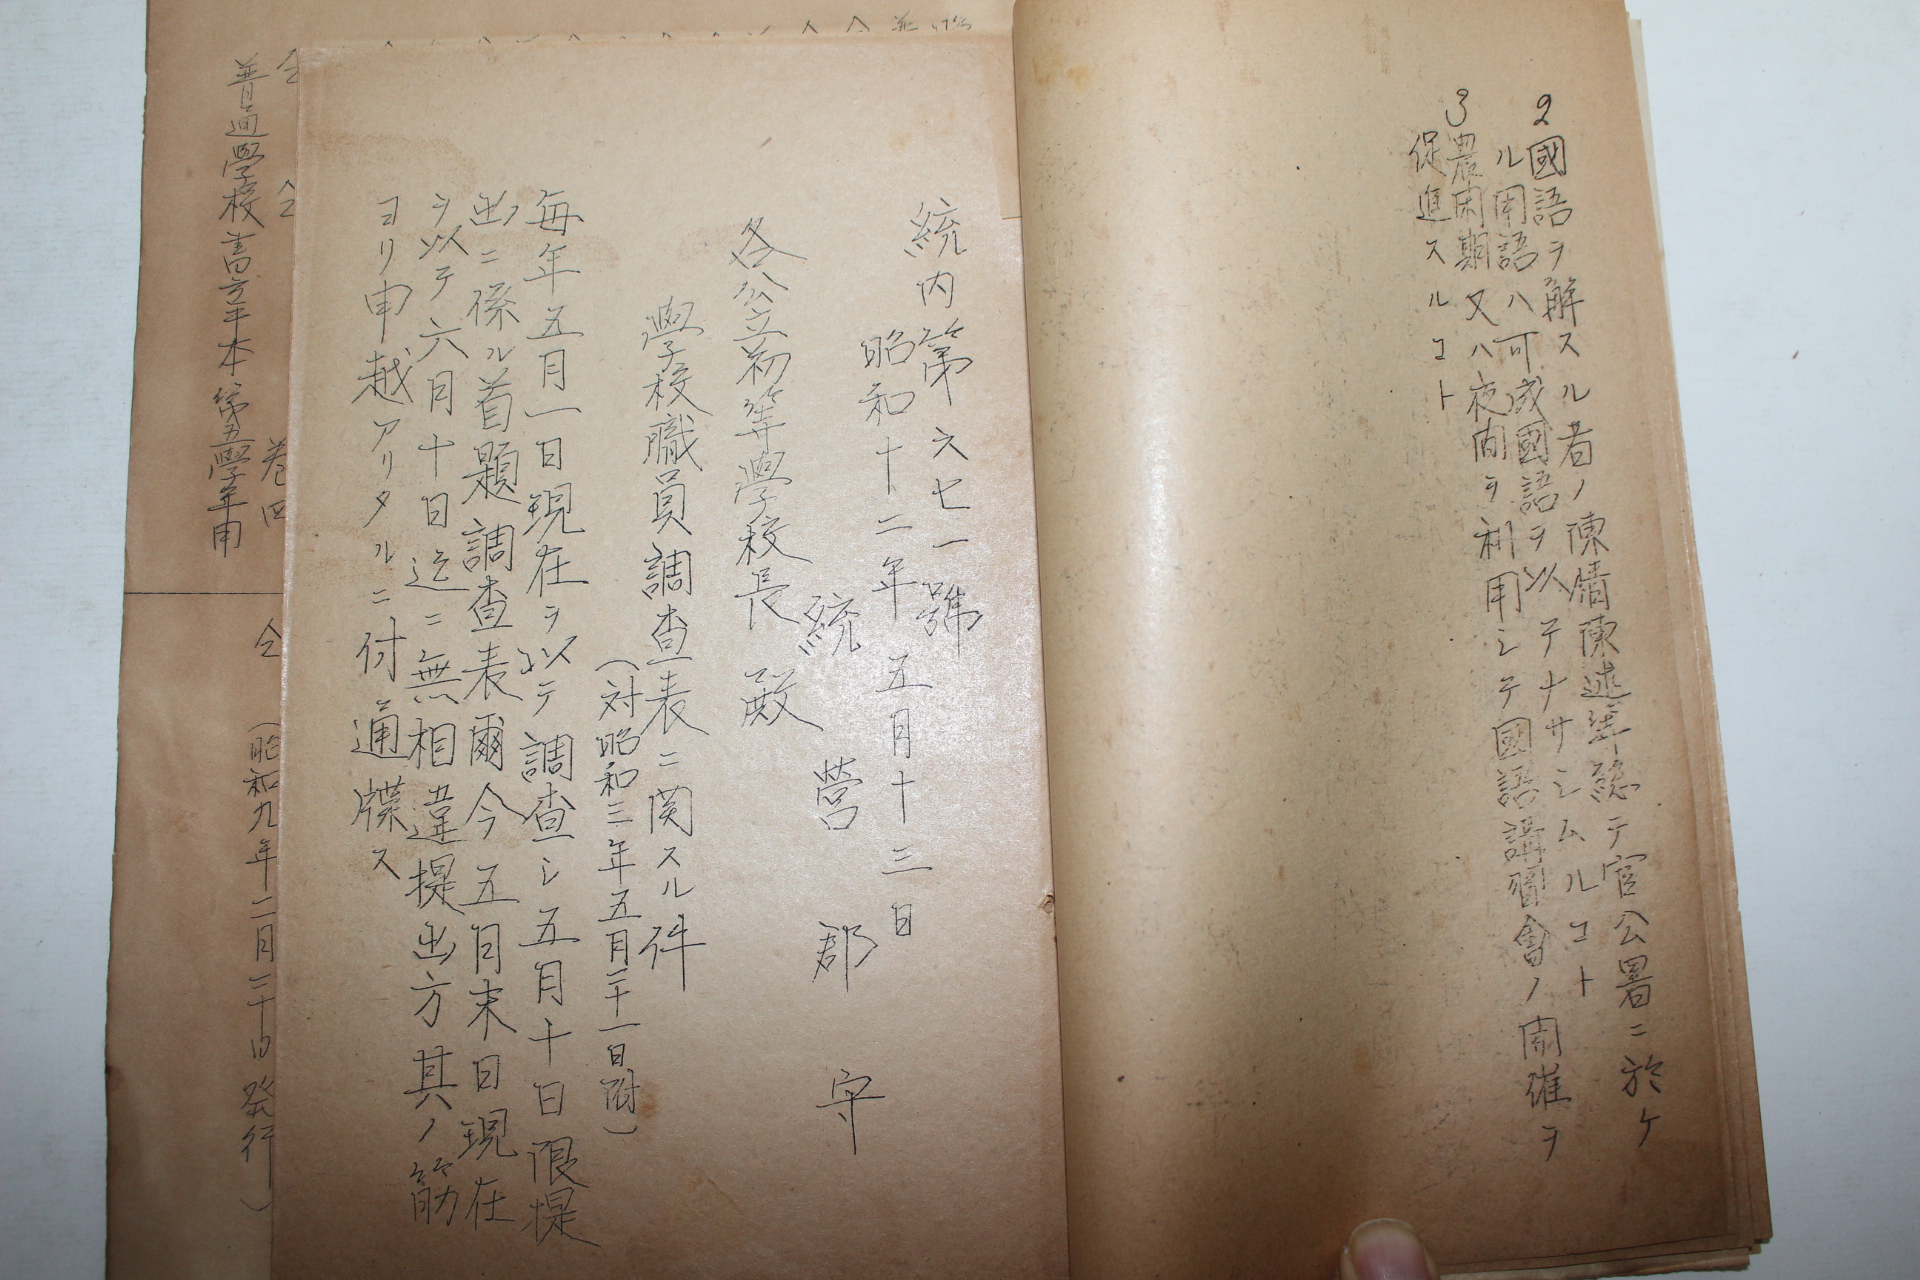 2 國語ヲ解スル者ノ陳情陳述等總テ官公署ニ於ケ
ル用語ハ可成國語ヲ以テナサシムルコト
3 農閑期又ハ夜間ヲ利用シテ國語講習會ノ開催ヲ
促進スルコト
統内第六七一號
昭和十二年五月十三日
統營郡守
各公立初等學校長殿
學校職員調査表ニ関スル件
(対昭和三年五月二十一日附)
毎年五月一日現在ヲ以テ調査シ五月十日限提
出ニ係ル首題調査表爾今五月末日現在
ヲ以テ六月十日迄ニ無相違提出方其ノ筋
ヨリ申越アリタルニ付通牒ス
仝 仝 巻四 仝 (昭和九年二月二十日発行)
普通學校書方手本第五學年用